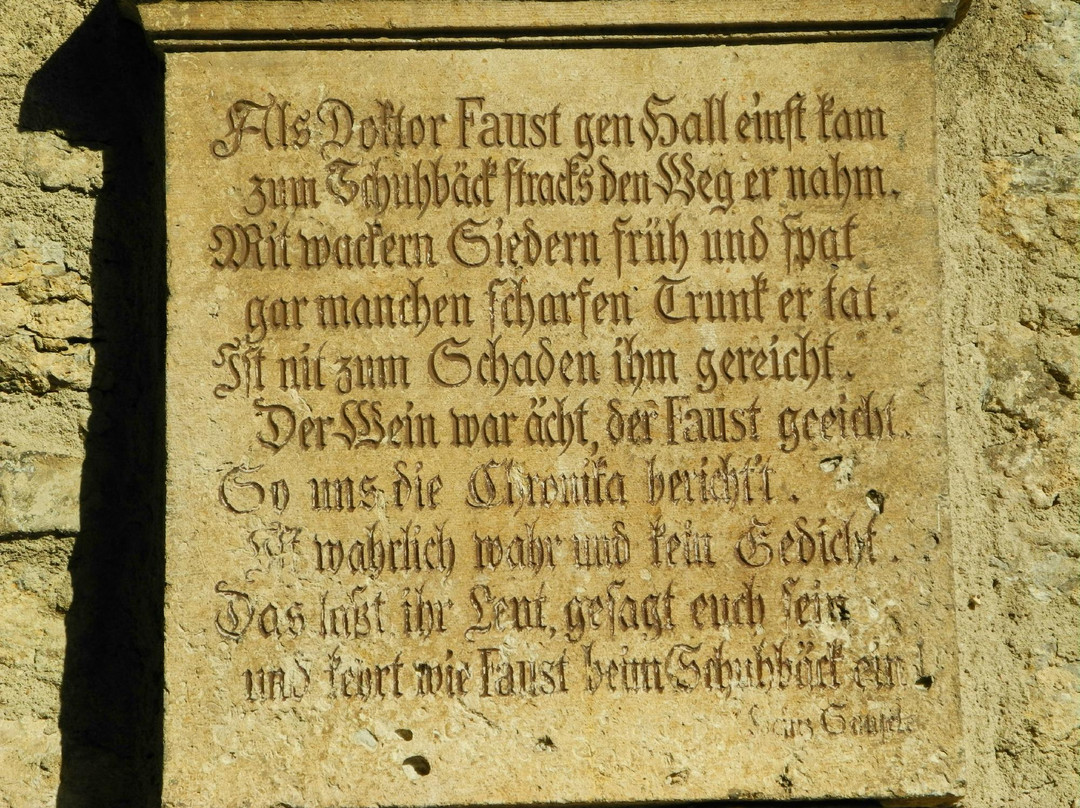 Als Doktor Faust gen Hall einst kam
zum Schuhbäck stracks den Weg er nahm.
Mit wackern Siedern früh und spat
gar manchen scharfen Trunk er tat.
Ist nit zum Schaden ihm gereicht.
Der Wein war ächt, der Faust geeicht.
So uns die Chronika bericht't.
Ist wahrlich wahr und kein Gedicht.
Das laßt ihr Leut, gesagt euch sein
und kehrt wie Faust beim Schuhbäck ein!